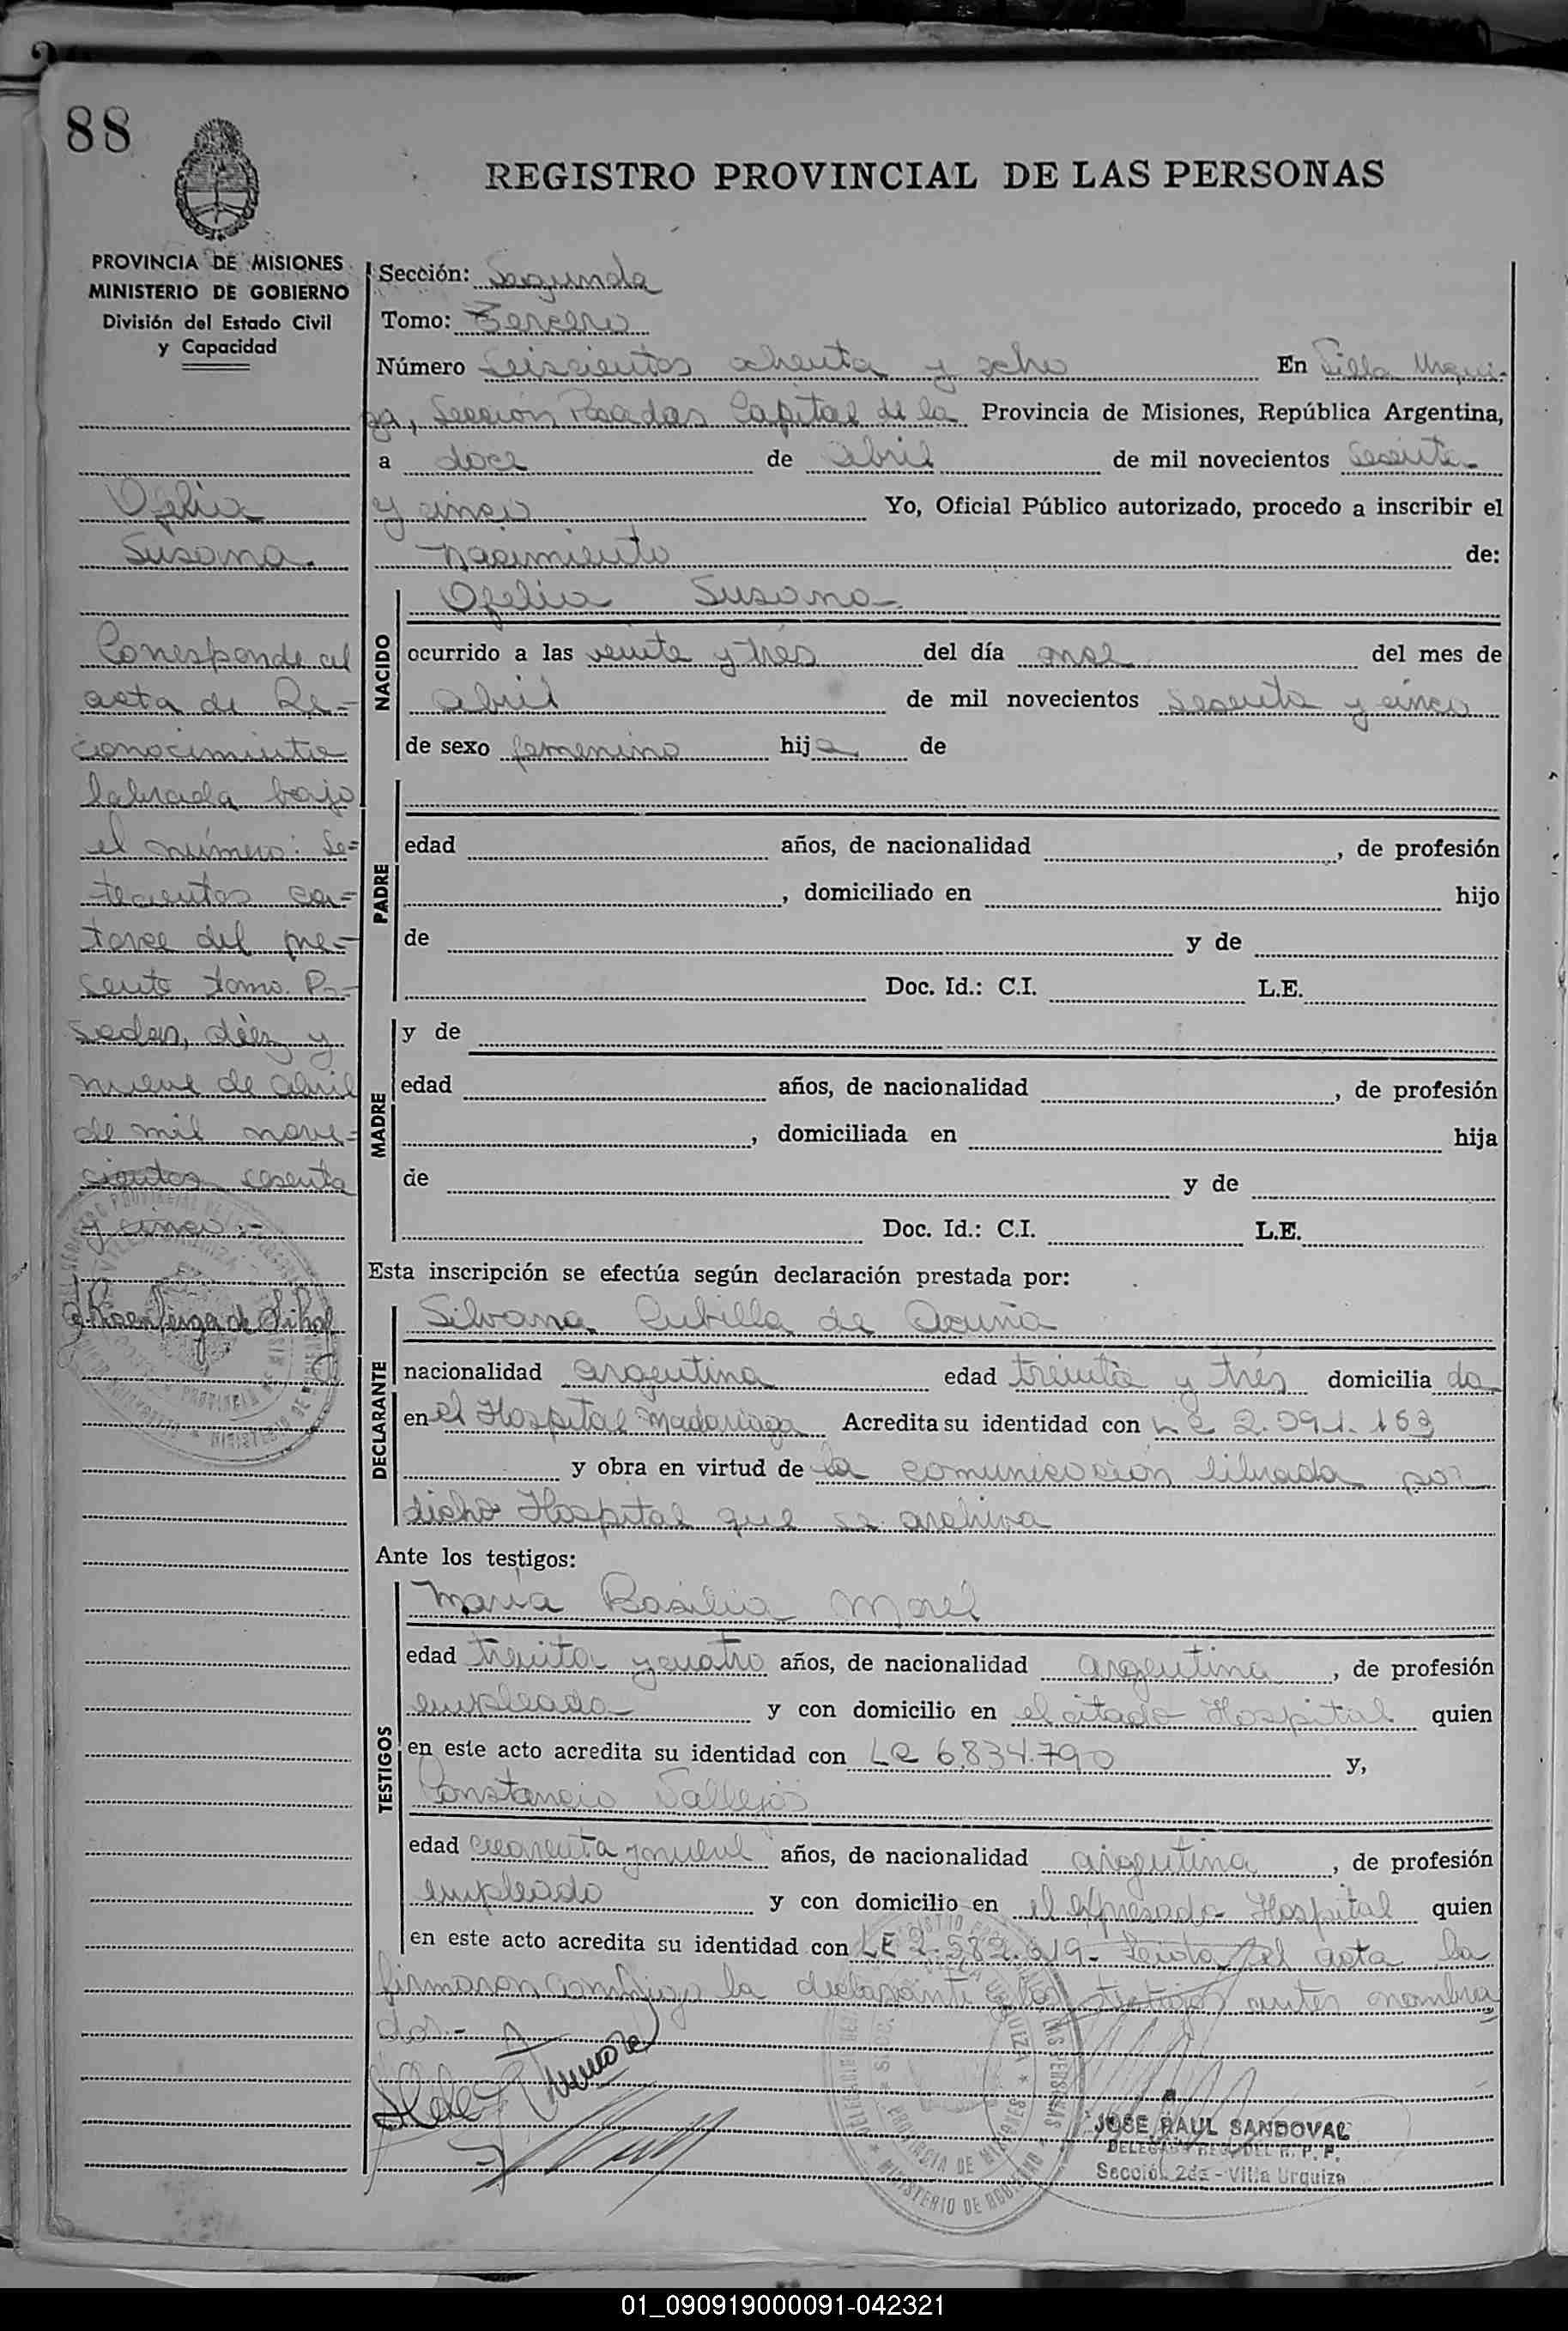 88
REGISTRO PROVINCIAL DE LAS PERSONAS
PROVINCIA DE MISIONES
MINISTERIO DE GOBIERNO
División del Estado Civil
y Capacidad
Ofelia
Susana.
Corresponde al
acta de Re-
conocimiento
labrada bajo
el número: Se=
tecientos ca=
torce del pre=
sente tomo. Po-
sadas, diez y
nueve de abril
de mil nove=
cientos sesenta
y cinco:-
Sección: Segunda
Tomo: Tercero
Número Seiscientos ochenta y ocho En Villa Urqui-
za, Sección Posadas Capital de la Provincia de Misiones, República Argentina,
a doce de abril de mil novecientos sesenta
y cinco Yo, Oficial Público autorizado, procedo a inscribir el
nacimiento de:
NACIDO
Ofelia Susana
ocurrido a las veinte y tres del día once del mes de
abril de mil novecientos sesenta y cinco
de sexo femenino hija de
PADRE
edad años, de nacionalidad , de profesión
, domiciliado en hijo
de y de
Doc. Id.: C.I. L.E.
MADRE
y de
edad años, de nacionalidad , de profesión
, domiciliada en hija
de y de
Doc. Id.: C.I. L.E.
Esta inscripción se efectúa según declaración prestada por:
DECLARANTE
Silvana Cubilla de Acuña
nacionalidad argentina edad treinta y tres domicilia da
en el Hospital Madariaga Acredita su identidad con L C 2.091.163
y obra en virtud de la comunicación librada por
dicho Hospital que se archiva
Ante los testigos:
TESTIGOS
María Basilia Morel
edad treinta y cuatro años, de nacionalidad argentina, de profesión
empleada y con domicilio en el citado Hospital quien
en este acto acredita su identidad con LC 6.834.790 y,
Constancio Vallejos
edad cuarenta y nueve años, de nacionalidad argentina, de profesión
empleado y con domicilio en el expresado Hospital quien
en este acto acredita su identidad con LE 2.582.619- Leida el acta la
firmaron conmigo la declarante y los testigos antes nombra
dos.-
JOSE RAUL SANDOVAL
Sección 2da - Villa Urquiza
01_090919000091-042321